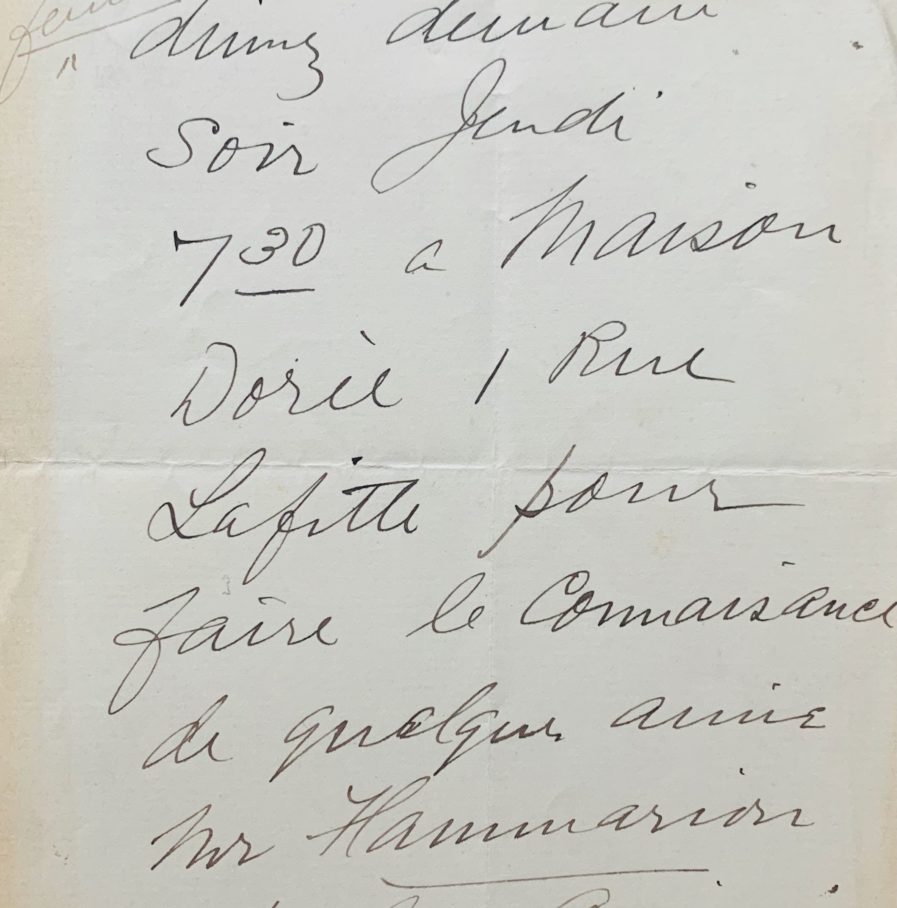 dinez demain
Soir Jeudi
7 30 a Maison
Dorèe 1 Rue
Lafitte pour
faire le Connaisance
de quelque amie
Mr Flammarion